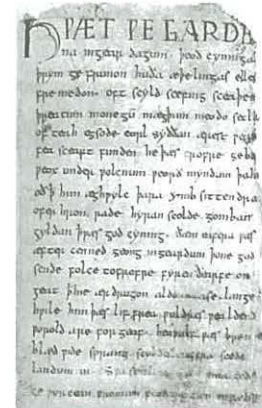 HǷÆT ǷE GARDE
na ingear dagum. þeod cyninga
þrym ge frunon huða æþelingas elle
fremedon. oft scyld scefing sceaþe
þreatum monegū mægþum meodo setla
of teah egsode eorl syððan ærest
fea sceaft funden he þæs frofre geba
ƿeox under ƿolcnum ƿeorð myndum þah
oð þ him æghƿylc þara ymb sittendra
ofer hron rade hyran scolde gomban
gyldan þ ƿæs god cyning. ðæm eafera ƿæs
æfter cenned geong ingeardum þone god
sende folce tofrofre fyren ðearfe on
geat þ hie ær drugon aldor ase. lange
hƿile him þæs lif frea ƿuldres ƿealdend
ƿorold are for geaf. beoƿulf ƿæs breme
blæd ƿide sprang scyldes eafera scede
landum in. Sƿa sceal gode
ge ƿyrcean fromum feoh giftum